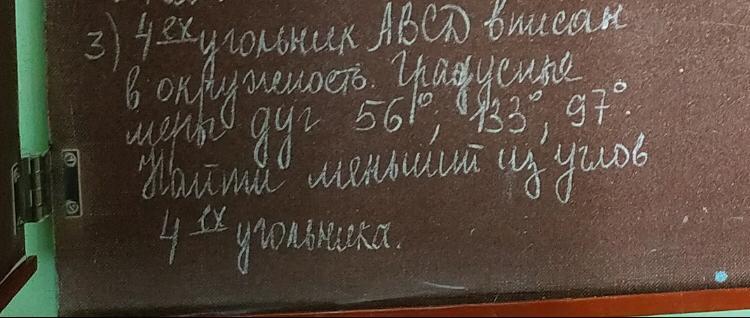 3) 4ех угольник ABCD вписан
в окружность. Градусные
меры дуг 56°, 133°, 97°.
Найти меньший из углов
4ех угольника.